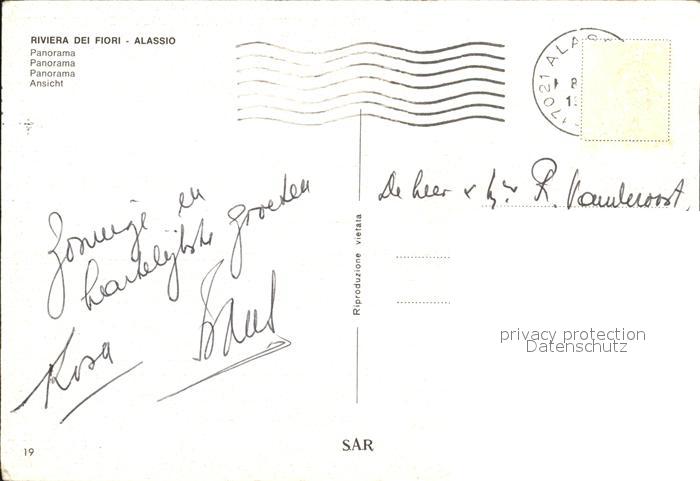 RIVIERA DEI FIORI - ALASSIO
Panorama
Panorama
Panorama
Ansicht
17021 ALAS
Zonnige en
hartelijkste groeten
Rosa
De heer & R. Vanderoost.
Riproduzione vietata
privacy protection
Datenschutz
19
SAR